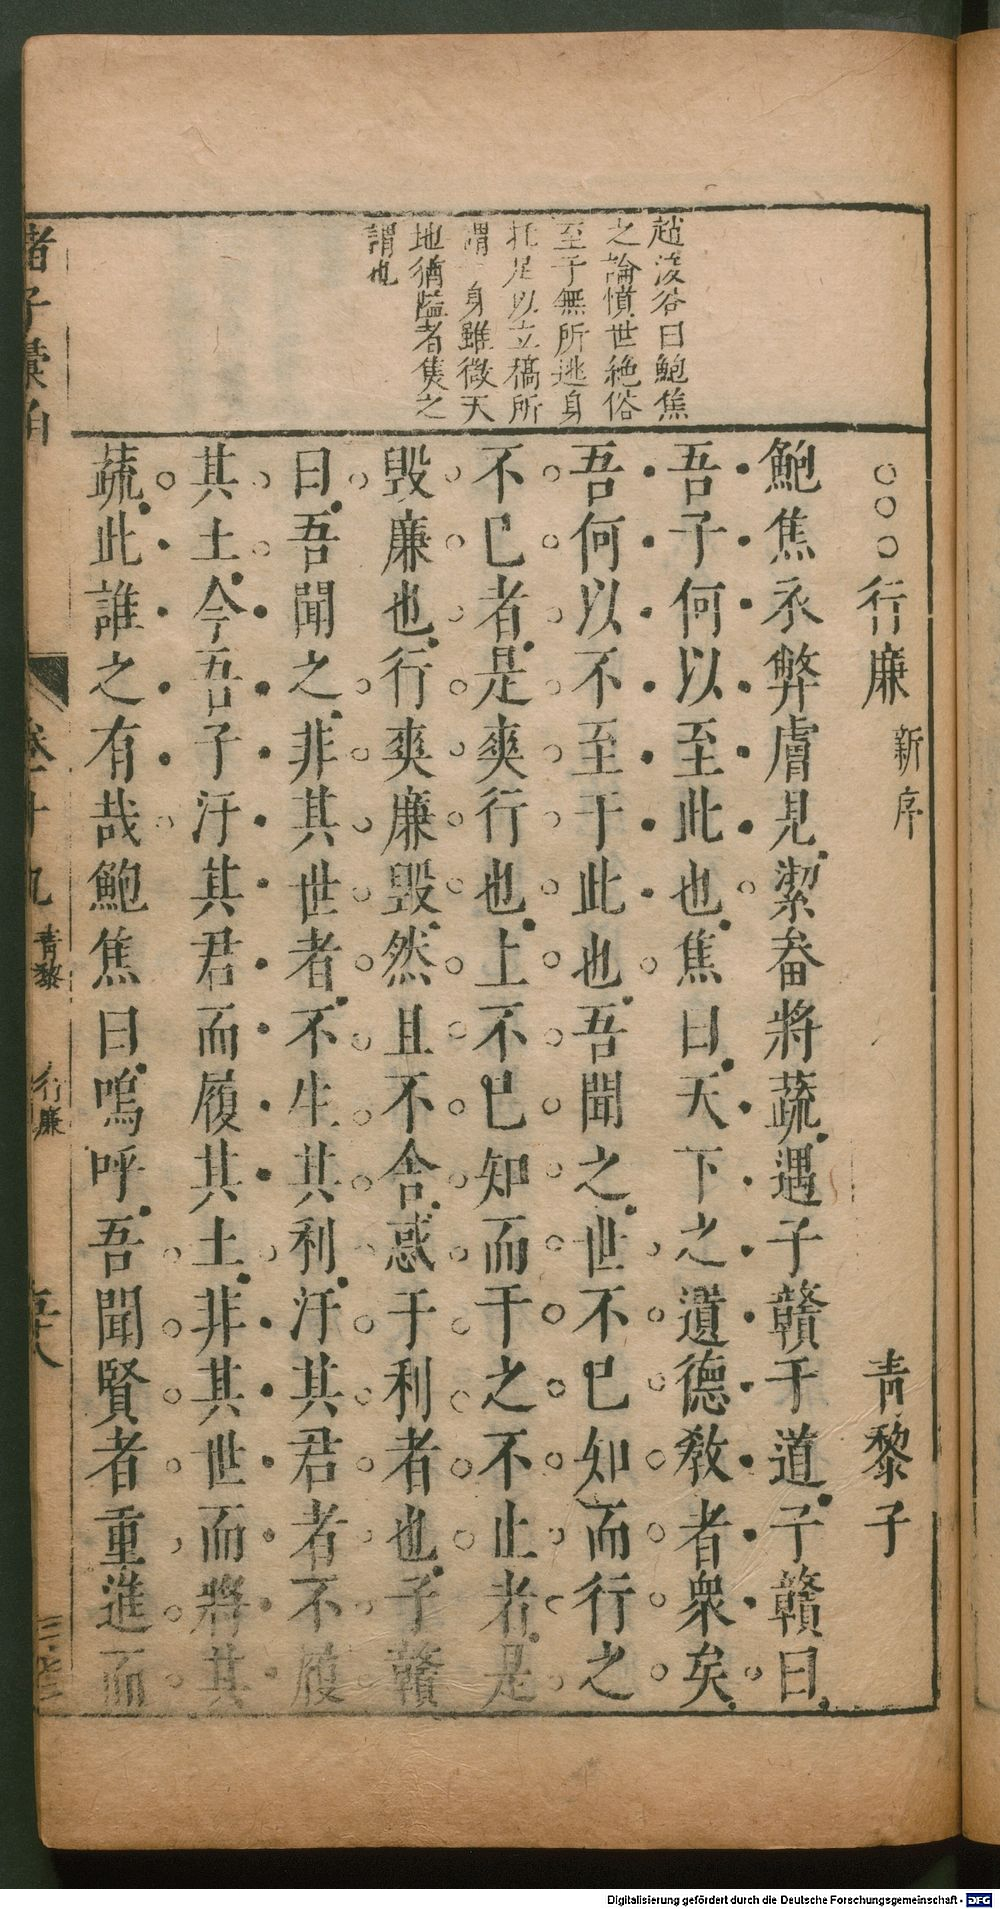 趙浚谷曰鮑焦
之論憤世絶俗
至于無所逃身
托足以立稿所
謂一身雖微天
地猶隘者焦之
謂也
○○○行廉 新序 青黎子
鮑焦衣弊膚見潔畚將蔬遇子贛于道子贛曰
吾子何以至此也焦曰天下之遺德教者衆矣
吾何以不至于此也吾聞之世不已知而行之
不已者是爽行也上不已知而干之不止者是
毀廉也行爽廉毀然且不舍惑于利者也子贛
曰吾聞之非其世者不生其利汙其君者不履
其土今吾子汙其君而履其土非其世而將其
蔬此誰之有哉鮑焦曰嗚呼吾聞賢者重進而
諸子彙函 卷十九 青黎 行廉 五十八
Digitalisierung gefördert durch die Deutsche Forschungsgemeinschaft - DFG